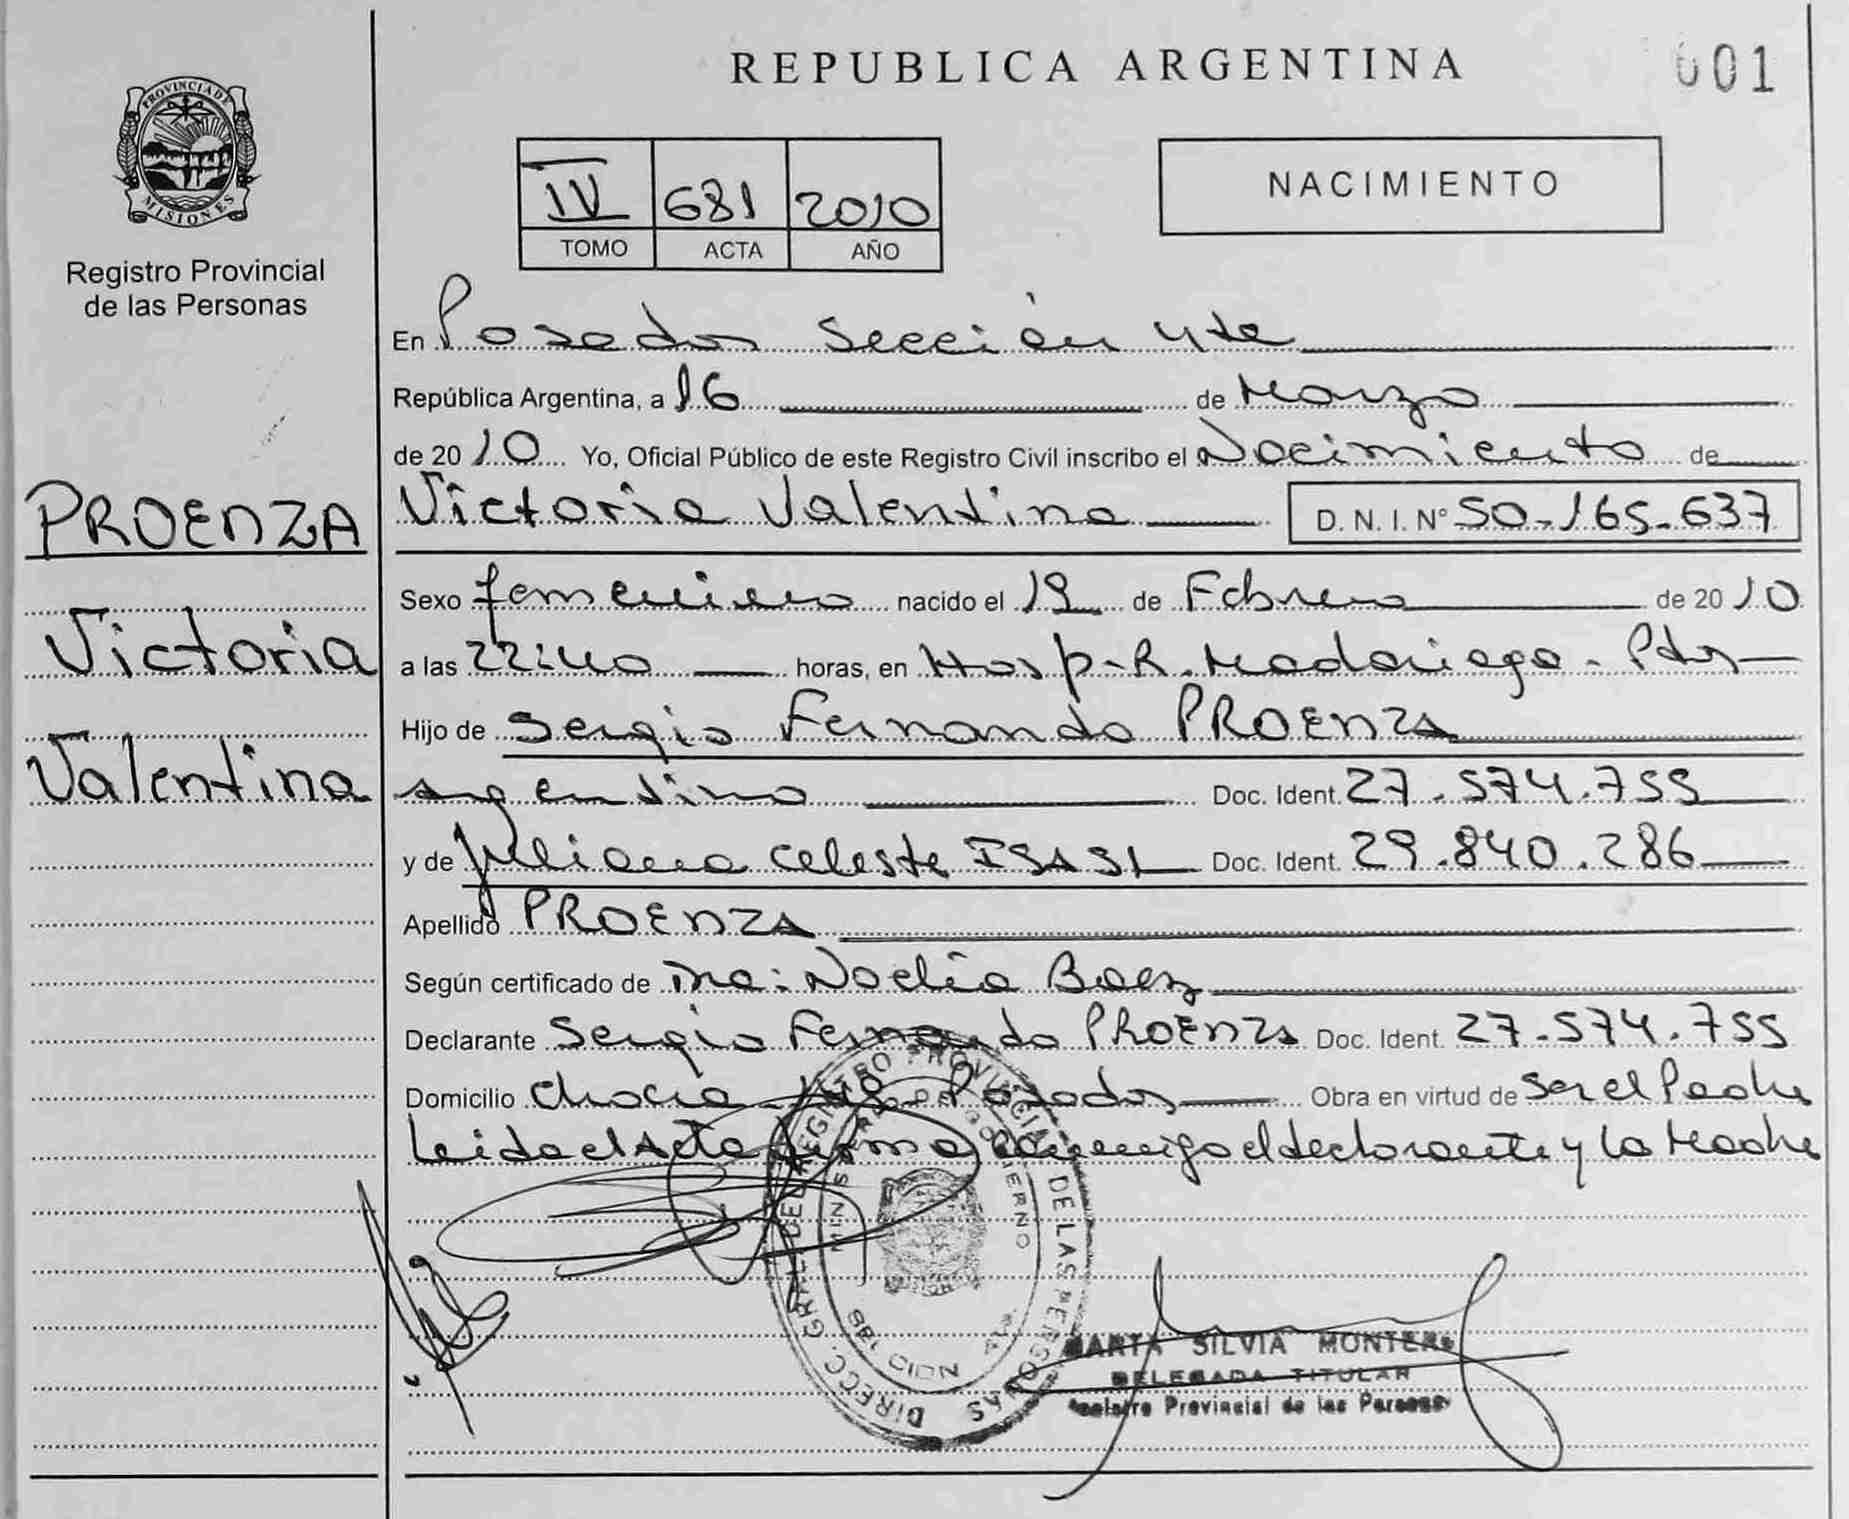 REPUBLICA ARGENTINA
001
PROVINCIA DE
MISIONES
Registro Provincial
de las Personas
IV 681 2010
TOMO ACTA AÑO
NACIMIENTO
En Posadas Sección 4ta
República Argentina, a 16 de Marzo
de 2010 Yo, Oficial Público de este Registro Civil inscribo el Nacimiento de
Victoria Valentina D. N. I. N° 50-165-637
PROENZA
Victoria
Valentina
Sexo femenino nacido el 19 de Febrero de 2010
a las 22:40 horas, en Hosp-R. Madariaga - Pdas
Hijo de Sergio Fernando PROENZA
Argentino Doc. Ident. 27.574.755
y de Juliana Celeste ISASI Doc. Ident. 29.840.286
Apellido PROENZA
Según certificado de Noelia Baez
Declarante Sergio Fernando PROENZA Doc. Ident. 27-574.755
Domicilio Posadas Obra en virtud de Ser el Padre
Leida el Acta firma conmigo el declarante y la Madre
DIRECC. GRAL. DEL REGISTRO PROVINCIAL DE LAS PERSONAS
MARTA SILVIA MONTERO
DELEGADA TITULAR
Registro Provincial de las Personas